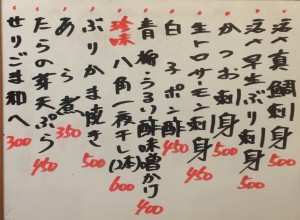 活〆真鯛刺身 500
活〆早生ぶり刺身 500
かつお刺身 500
生トロサーモン刺身 500
白子ポン酢 450
青柳・うるい酢味噌かけ 400
珍味 八角一夜干し(2本) 600
ぶりかま焼き 500
あら煮 350
たらの芽天ぷら 450
せりごま和へ 300